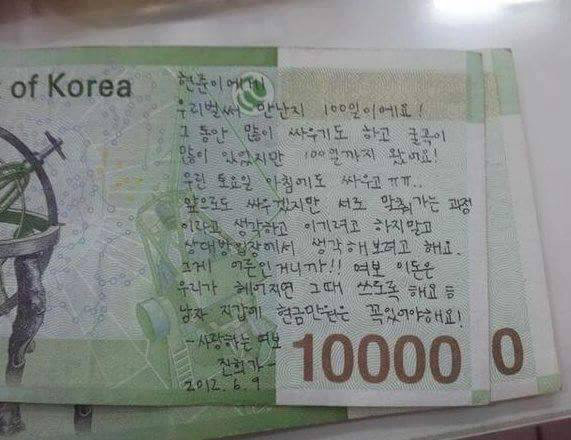 of Korea
현준이에게
우리벌써 만난지 100일이에요!
그 동안 많이 싸우기도 하고 굴곡이
많이 있었지만 100일까지 왔어요!
우린 토요일 아침에도 싸우고 ㅠㅠ..
앞으로도 싸우겠지만 서로 맞춰가는 과정
이라고 생각하고 이기려고 하지말고
상대방입장에서 생각해보려고 해요.
그게 어른인거니까!! 여보 이돈은
우리가 헤어지면 그때 쓰도록 해요 등
남자 지갑에 현금만원은 꼭있어야해요!
-사랑하는 여보
진희가-
2012.6.9
10000
0